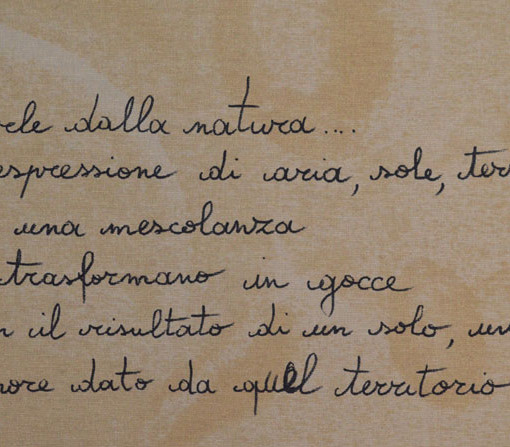 ele dalla natura....
espressione di aria, sole, terr
una mescolanza
trasformano in gocce
n il risultato di un solo, un
ore dato da quel territorio